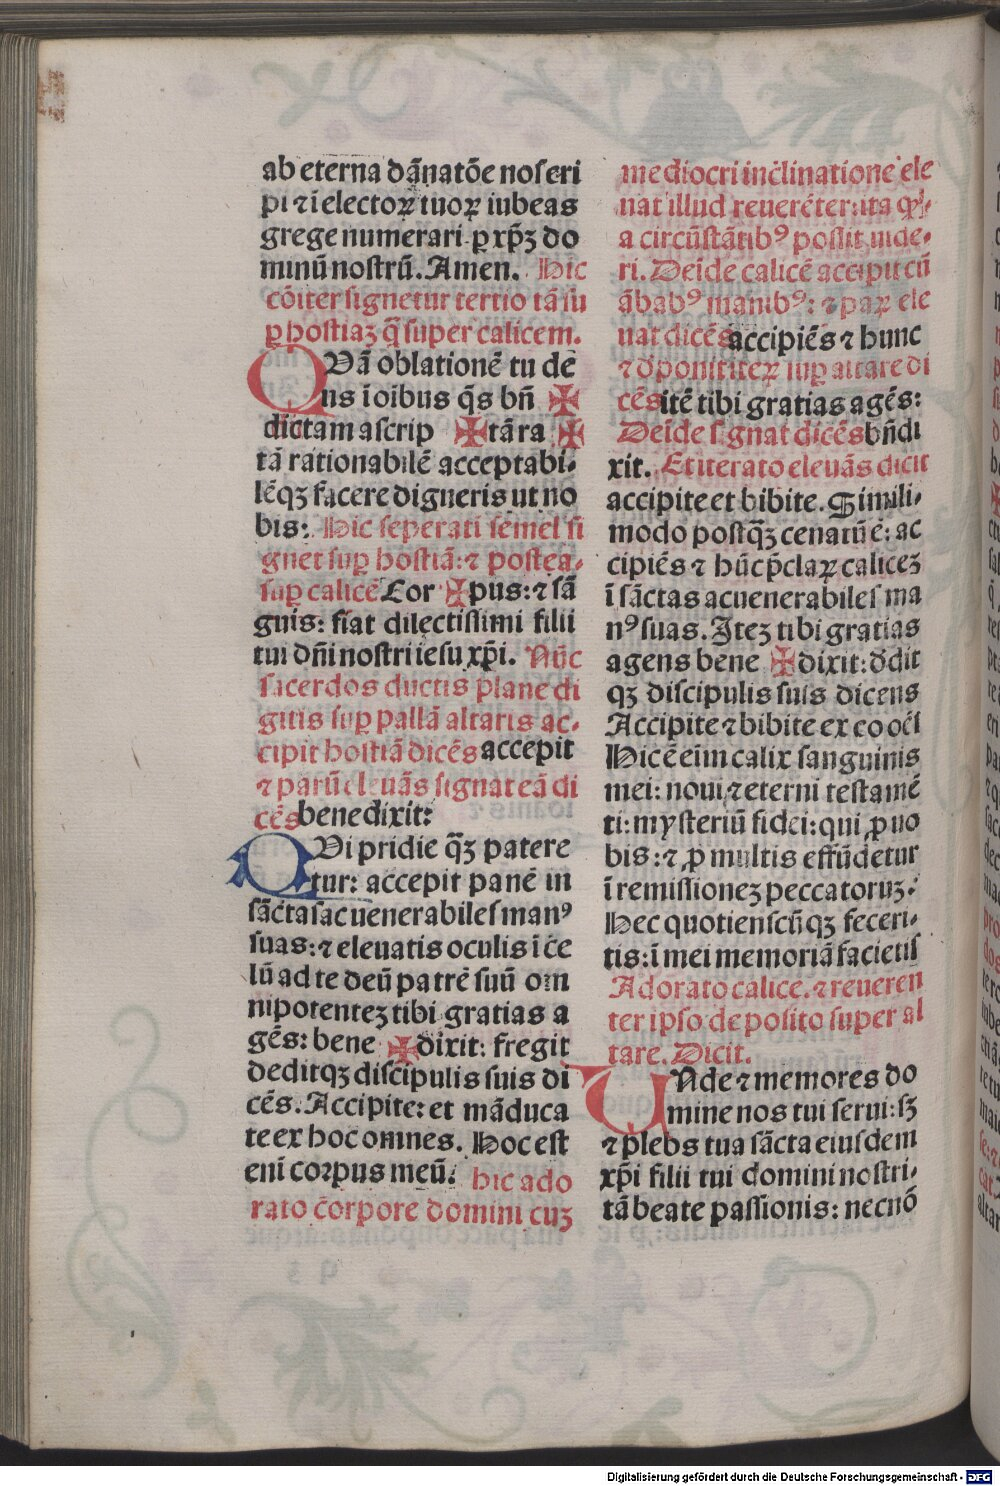 ab eterna dãnatõe nos eri
pi ⁊ ĩ electoꝝ tuoꝝ iubeas
grege numerari ꝑ xp̃ꝫ do
minũ nostrũ. Amen. Hic
cõiter signetur tertio tã su
ꝑ hostiaꝫ q̃ super calicem.
QVã oblationẽ tu de
us ĩ oĩbus q̃s bñ ✠
dictam ascrip ✠ tã ra ✠
tã rationabilẽ acceptabi-
lẽqꝫ facere digneris ut no
bis: Hic seperati semel si
gnet suꝑ hostiã: ⁊ postea
suꝑ calicẽ Cor ✠ pus: ⁊ sã
guis: fiat dilectissimi filii
tui dñi nostri iesu xp̃i. Nũc
sacerdos ductis plane di
gitis suꝑ pallã altaris ac-
cipit hostiã dicẽs accepit
⁊ parũ eleuãs signat eã di
cẽs benedixit:
QVi pridie q̃ꝫ patere
tur: accepit panẽ in
sãcta sac uenerabiles manꝰ
suas: ⁊ eleuatis oculis ĩ ce
lũ ad te deũ patrẽ suũ om
nipotenteꝫ tibi gratias a
gẽs: bene ✠ dixit: fregit
deditqꝫ discipulis suis di
cẽs. Accipite: et mãduca
te ex hoc omnes. Hoc est
eni corpus meũ. hic ado
rato corpore domini cuꝫ
mediocri inclinatione ele
uat illud reuerẽter: ita qꝫ
a circũstãtibꝰ possit uide-
ri. Deide calicẽ accipit cũ
ãbabꝰ manibꝰ: ⁊ paꝝ ele
uat dicẽs accipiẽs ⁊ hunc
⁊ dponit iteꝝ suꝑ altare di
cẽs itẽ tibi gratias agẽs:
Deide signat dicẽs bñdi
xit. Et iterato eleuãs dicit
accipite et bibite. Simili-
modo postq̃ꝫ cenatũ e: ac
cipiẽs ⁊ hũc p̃claꝝ caliceꝫ
ĩ sãctas ac uenerabiles ma
nꝰ suas. Iteꝫ tibi gratias
agens bene ✠ dixit: ddit
qꝫ discipulis suis dicens
Accipite ⁊ bibite ex eo oẽs
Hic ẽ eim calix sanguinis
mei: noui ⁊ eterni testamẽ
ti: mysteriũ fidei: qui ꝓ uo
bis: ⁊ ꝓ multis effũdetur
ĩ remissioneꝫ peccatoruꝫ.
Hec quotienscũqꝫ feceri-
tis: ĩ mei memoriã facietis
Adorato calice. ⁊ reueren
ter ipso deposito super al
tare. Dicit.
VNde ⁊ memores do
mine nos tui serui: sꝫ
⁊ plebs tua sãcta eiusdem
xp̃i filii tui domini nostri-
tã beate passionis: necnõ
Digitalisierung gefördert durch die Deutsche Forschungsgemeinschaft - DFG